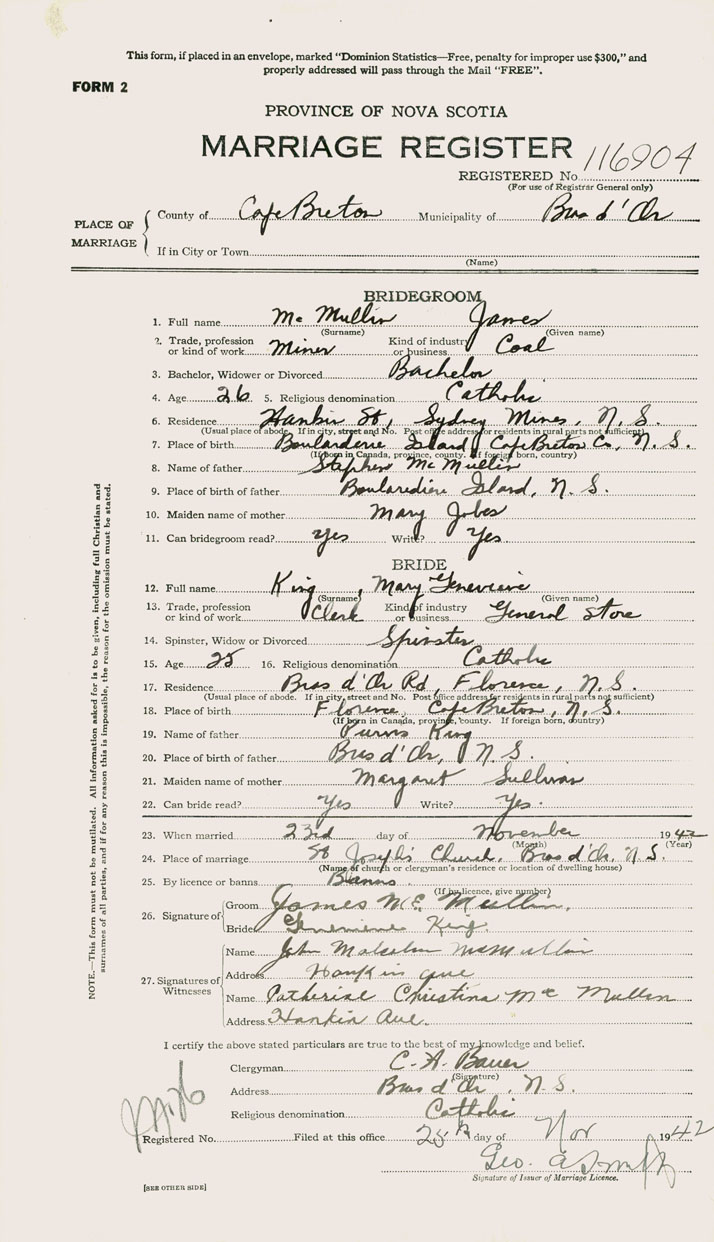 This form, if placed in an envelope, marked "Dominion Statistics—Free, penalty for improper use $300," and
properly addressed will pass through the Mail "FREE".
FORM 2
PROVINCE OF NOVA SCOTIA
MARRIAGE REGISTER
116904
REGISTERED No.
(For use of Registrar General only)
PLACE OF MARRIAGE
County of Cape Breton Municipality of Bras d'Or
If in City or Town
(Name)
BRIDEGROOM
1. Full name Mc Mullin James
(Surname) (Given name)
2. Trade, profession or kind of work Miner Kind of industry or business Coal
3. Bachelor, Widower or Divorced Bachelor
4. Age 26 5. Religious denomination Catholic
6. Residence Hankin St, Sydney Mines, N. S.
(Usual place of abode. If in city, street and No. Post office address for residents in rural parts not sufficient)
7. Place of birth Boularderie Island, Cape Breton Co, N. S.
(If born in Canada, province, county. If foreign born, country)
8. Name of father Stephen Mc Mullin
9. Place of birth of father Boularediere Island, N. S.
10. Maiden name of mother Mary Jobes
11. Can bridegroom read? Yes Write? Yes.
BRIDE
12. Full name King, Mary Genevieve
(Surname) (Given name)
13. Trade, profession or kind of work Clerk Kind of industry or business General Store
14. Spinster, Widow or Divorced Spinster
15. Age 25 16. Religious denomination Catholic
17. Residence Bras d'Or Rd, Florence, N. S.
(Usual place of abode. If in city, street and No. Post office address for residents in rural parts not sufficient)
18. Place of birth Florence, Cape Breton, N. S.
(If born in Canada, province, county. If foreign born, country)
19. Name of father Purvis King
20. Place of birth of father Bras d'Or, N. S.
21. Maiden name of mother Margaret Sullivan
22. Can bride read? Yes Write? Yes.
23. When married 23rd day of November 1942
(Month) (Year)
24. Place of marriage St Joseph's Church, Bras d'Or, N. S.
(Name of church or clergyman's residence or location of dwelling house)
25. By licence or banns Banns.
(If by licence, give number)
26. Signature of Groom James Mc Mullin.
Bride Genevieve King.
27. Signatures of Witnesses
Name John Malcolm McMullin
Address Hankin ave
Name Catherine Christina Mc Mullin
Address Hankin Ave.
I certify the above stated particulars are true to the best of my knowledge and belief.
Clergyman C. A. Bauer
(Signature)
Address Bras d'Or, N. S.
Religious denomination Catholic
Registered No. Filed at this office 25th day of Nov 1942
Geo. A Smith
Signature of Issuer of Marriage Licence.
[SEE OTHER SIDE]
NOTE.—This form must not be mutilated. All information asked for is to be given, including full Christian and
surnames of all parties, and if for any reason this is impossible, the reason for the omission must be stated.